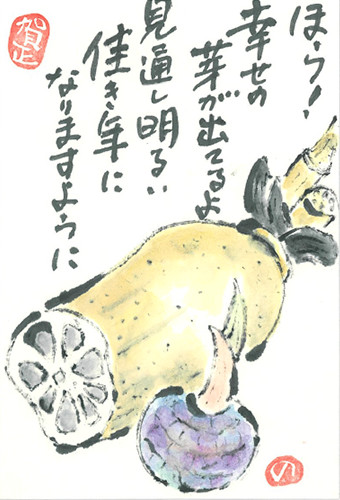 ほら!
幸せの
芽が出てるよ
見通し明るい
佳き年に
なりますように
賀正
の